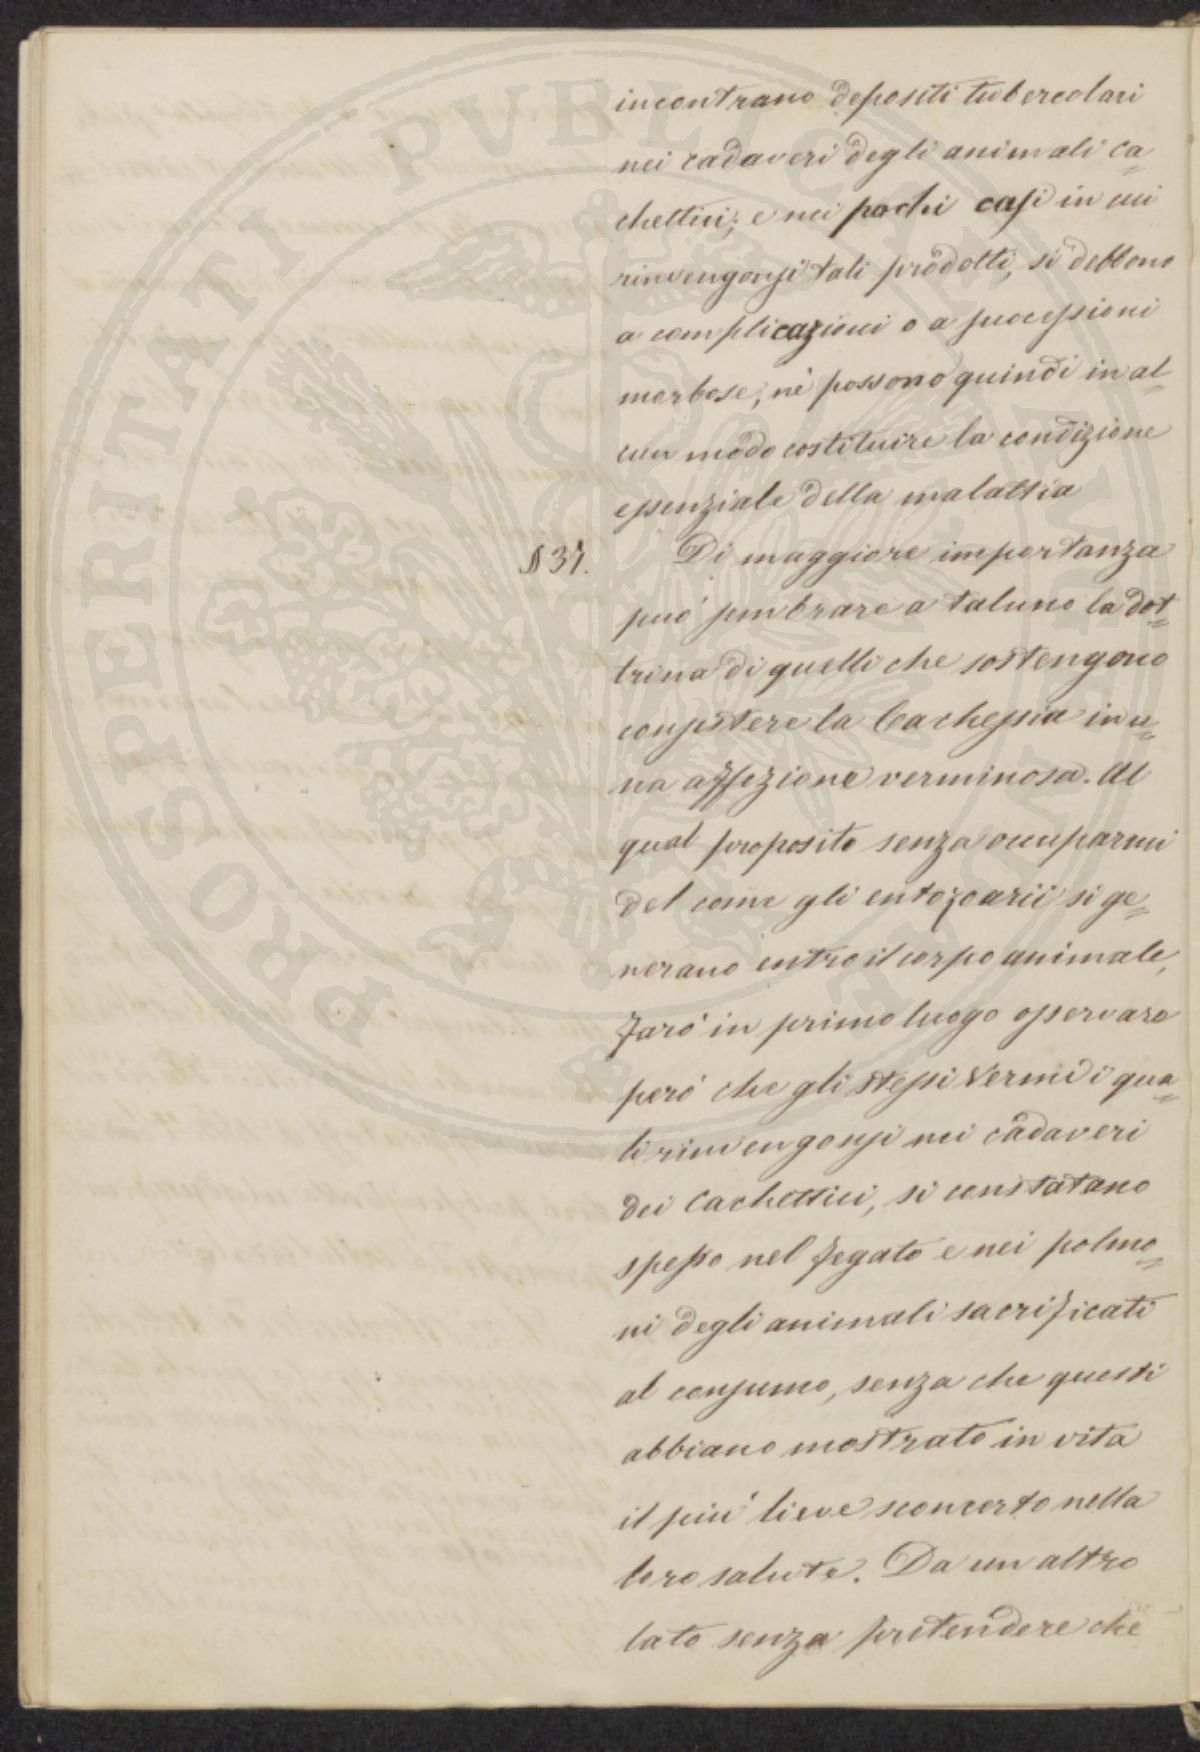 incontrano depositi tubercolari
nei cadaveri degli animali ca=
chettici; e nei pochi casi in cui
rinvengonsi tali prodotti, si debbono
a complicazioni o a successioni
morbose; nè possono quindi in al=
cun modo costituire la condizione
essenziale della malattia
§ 37. Di maggiore importanza
può sembrare a taluno la dot=
trina di quelli che sostengono
consistere la Cachessia in u=
na affezione verminosa. Al
qual proposito senza occuparmi
del come gli entozoarii si ge=
nerano entro il corpo animale,
farò in primo luogo osservare
però che gli stessi vermi i qua=
li rinvengonsi nei cadaveri
dei Cachettici, si constatano
spesso nel fegato e nei polmo=
ni degli animali sacrificati
al consumo, senza che questi
abbiano mostrato in vita
il più lieve sconcerto nella
loro salute. Da un altro
lato senza pretendere che
PROSPERITATI PVBLICAE